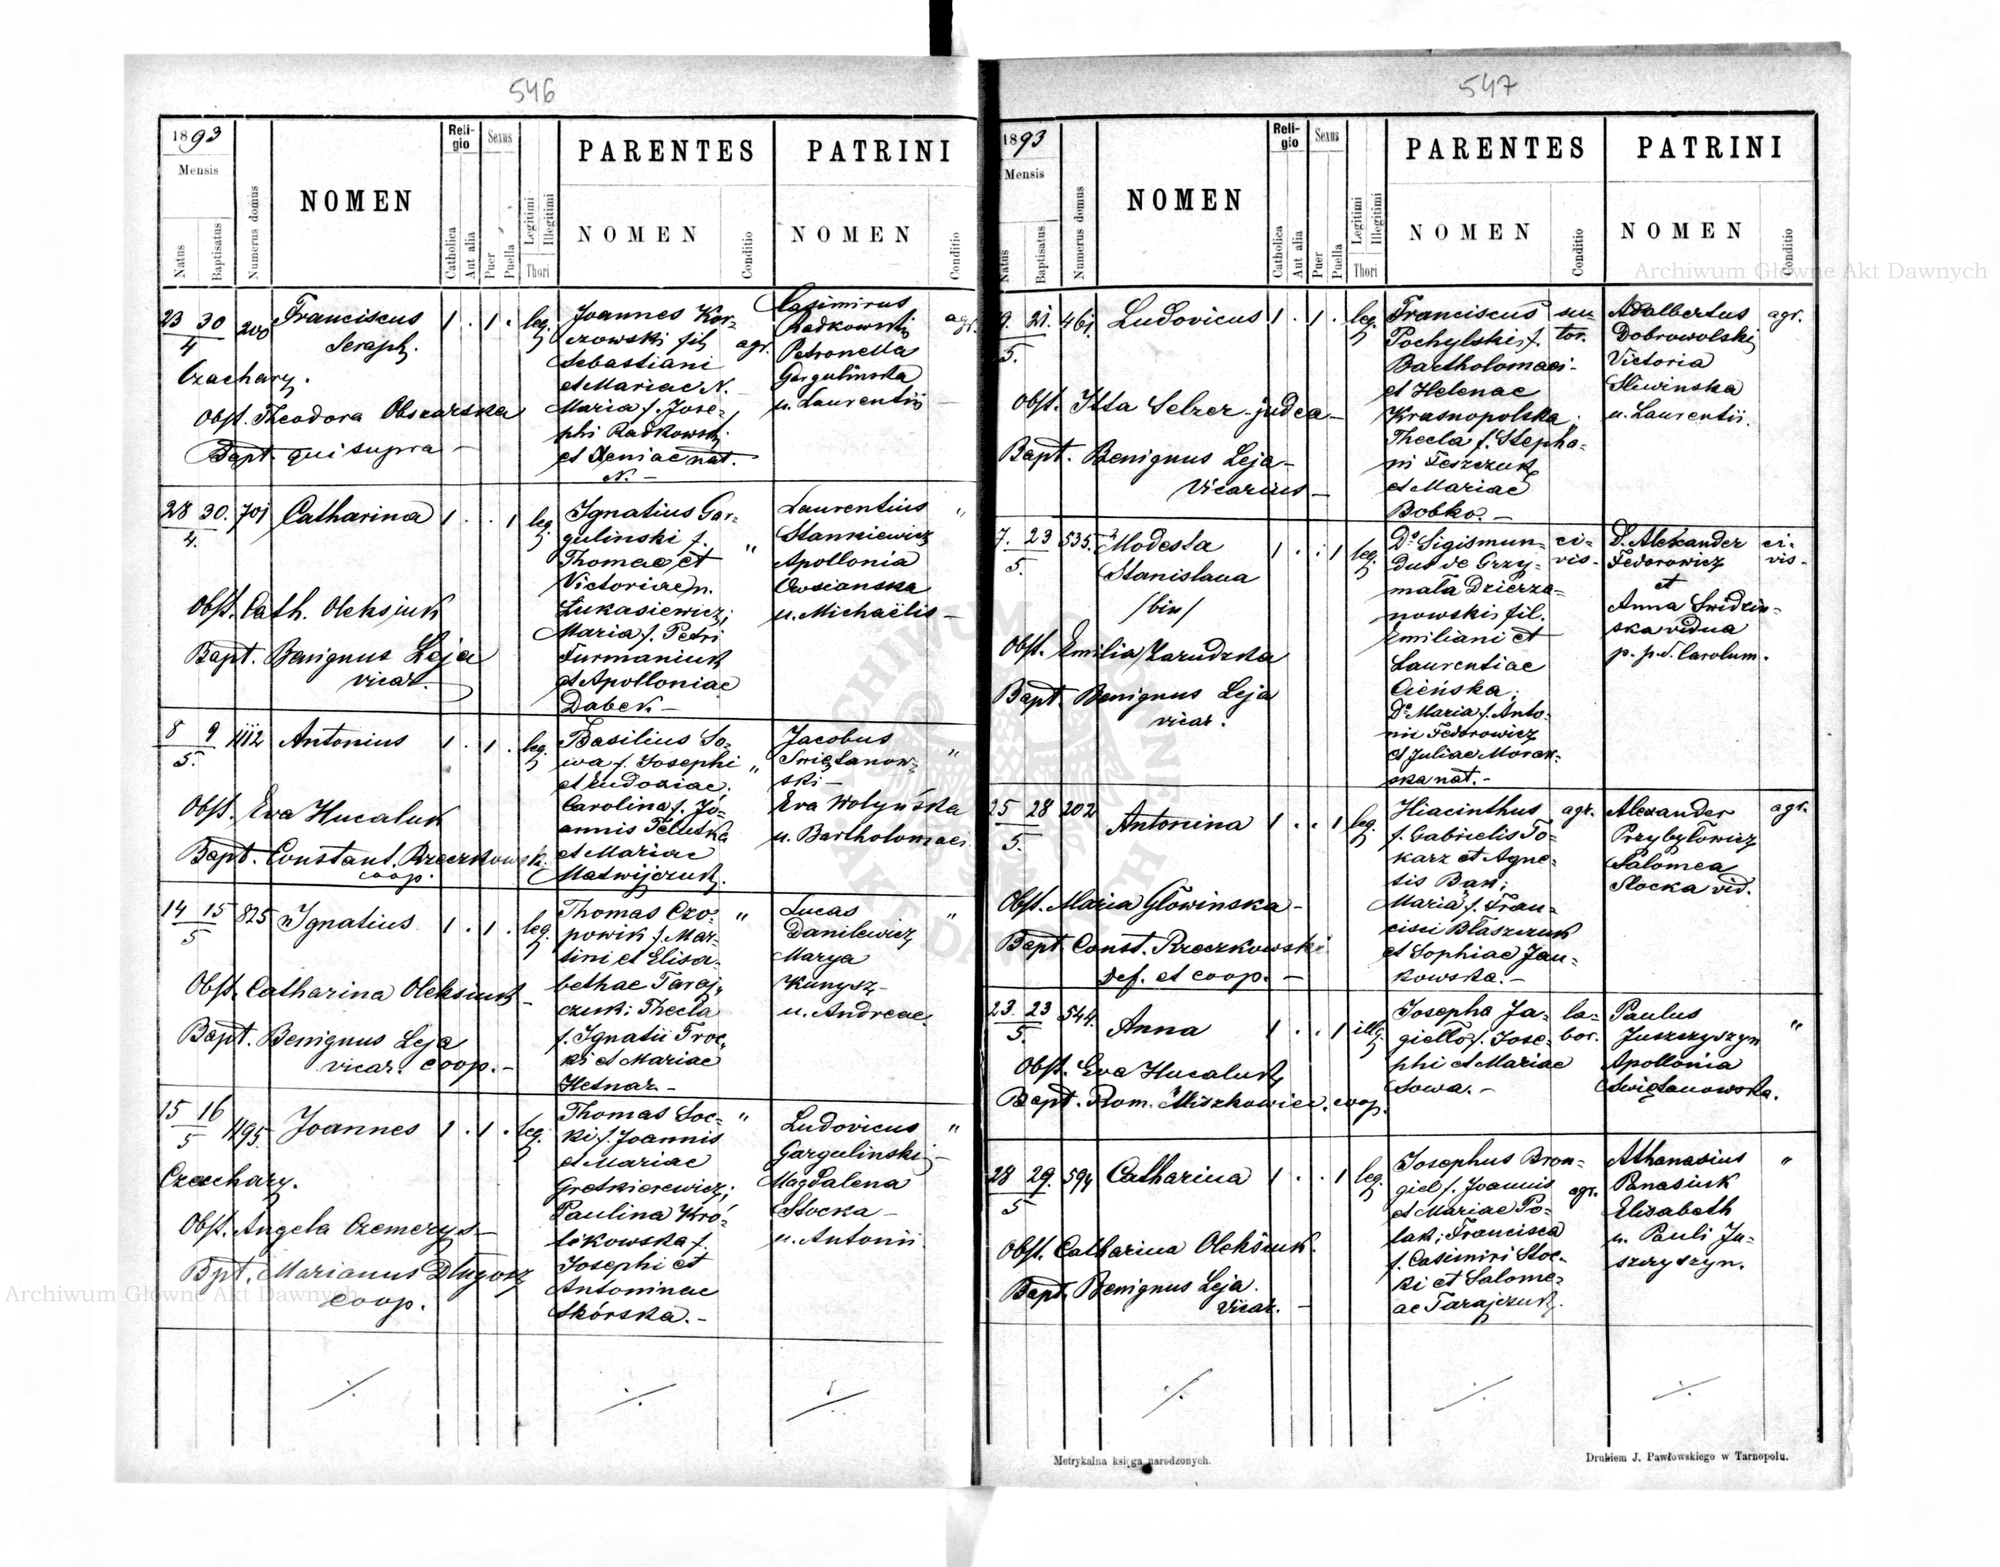 546
1893
Mensis
Natus
Baptisatus
Numerus domus
NOMEN
Religio
Catholica
Aut alia
Sexus
Puer
Puella
Legitimi
Illegitimi
Thori
PARENTES
NOMEN
Conditio
PATRINI
NOMEN
Conditio
23 30
4
200
Franciscus
Seraph.
Czachary.
Obst. Theodora Obszarska
Bapt. qui supra -
1 . 1 . leg.
Joannes Kor-
czowski fil.
Sebastiani
et Mariae N.
Maria f. Jose-
phi Radkowski
et Xeniae nat.
N. -
agr.
Casimirus
Radkowski
Petronella
Gargulinska
u. Laurentii
agr.
28 30.
4.
701
Catharina
Obst. Cath. Oleksiuk
Bapt. Benignus Leja
vicar.
1 . . 1 leg.
Ignatius Gar-
gulinski f.
Thomae et
Victoriae n.
Lukasiewicz;
Maria f. Petri
Furmaniuk
et Apolloniae
Dabek -
"
Laurentius
Stankiewicz
Apollonia
Owsianska
u. Michaëlis -
"
8 9
5.
1112
Antonius
Obst. Eva Hucaluk
Bapt. Constant. Rzeczkowsk.
coop.
1 . 1 . leg.
Basilius So-
wa f. Josephi
et Eudoxiae.
Carolina f. Jo-
annis Teluska
et Mariae
Matwijczuk.
"
Jacobus
Swiętanow-
ski -
Eva Wołyńska
u. Bartholomaei
"
14 15
5
825
Ignatius
Obst. Catharina Oleksiuk -
Bapt. Benignus Leja
vicar. coop. -
1 . 1 . leg.
Thomas Czo-
powik f. Mar-
tini et Elisa-
bethae Taraj-
czuk; Thecla
f. Ignatii Troc-
ki et Mariae
Hetnar -
"
Lucas
Danilewicz
Marya
Kunysz -
u. Andreae.
"
15 16
5
1195
Joannes
Czachary.
Obst. Angela Czemerys -
Bpt. Marianus Długosz
coop.
1 . 1 . leg.
Thomas Soc-
ki f. Joannis
et Mariae
Gretkierewicz;
Paulina Kró-
likowska f.
Josephi et
Antoninae
Skórska. -
"
Ludovicus
Gargulinski -
Magdalena
Stocka -
u. Antonii
"
547
1893
Mensis
Natus
Baptisatus
Numerus domus
NOMEN
Religio
Catholica
Aut alia
Sexus
Puer
Puella
Legitimi
Illegitimi
Thori
PARENTES
NOMEN
Conditio
PATRINI
NOMEN
Conditio
9. 21.
5.
461
Ludovicus
Obst. Itta Selzer - judea -
Bapt. Benignus Leja -
Vicarius -
1 . 1 . leg.
Franciscus
Pochylski f.
Bartholomaei -
et Helenae
Krasnopolska;
Thecla f. Stepha-
ni Feszczuk
et Mariae
Bobko. -
su-
tor.
Adalbertus
Dobrowolski
Victoria
Sliwinska
u. Laurentii.
agr.
7. 23
5.
535.
Modesta
Stanislava
/bin/
Obst. Emilia Zarudzka
Bapt. Benignus Leja
vicar.
1 . . 1 leg.
Ds Sigismun-
dus de Grzy-
mała Dzierża-
nowski, fil.
Emiliani et
Laurentiae
Cieńska;
Da Maria f. Anto-
nii Fedorowicz
et Juliae Moraw-
ska nat. -
ci-
vis -
D. Alexander
Fedorowicz
et
Anna Swidzin-
ska vidua
p. p. d. Carolum.
ci-
vis -
25 28
5.
202
Antonina
Obst. Maria Głowinska -
Bapt. Const. Rzeczkowski
def. et coop. -
1 . . 1 leg.
Hiacinthus
f. Gabrielis To-
karz et Agne-
tis Bak;
Maria f. Fran-
cisci Błaszczuk
et Sophiae Jan-
kowska. -
agr.
Alexander
Przybyłowicz
Salomea
Slocka vid.
agr.
23. 23
5.
544.
Anna
Obst. Eva Hucaluk
Bapt. Rom. Miszkowicz. coop.
1 . . 1 illg.
Josepha Ja-
giełło f. Jose-
phi et Mariae
Sowa. -
la-
bor.
Paulus
Juszczyszyn
Apollonia
Swiętanowska.
"
28 29.
5
594
Catharina
Obst. Catharina Oleksiuk.
Bapt. Benignus Leja.
Vicar. -
1 . . 1 leg.
Josephus Bron-
giel f. Joannis
et Mariae Po-
lak; Francisca
f. Casimiri Stoc-
ki et Salome-
ae Tarajczuk.
agr.
Athanasius
Panasiuk
Elisabeth
u. Pauli Ju-
szczyszyn.
"
Metrykalna księga narodzonych.
Drukiem J. Pawłowskiego w Tarnopolu.
Archiwum Główne Akt Dawnych
Archiwum Główne Akt Dawnych
ARCHIWUM GŁÓWNE AKT DAWNYCH